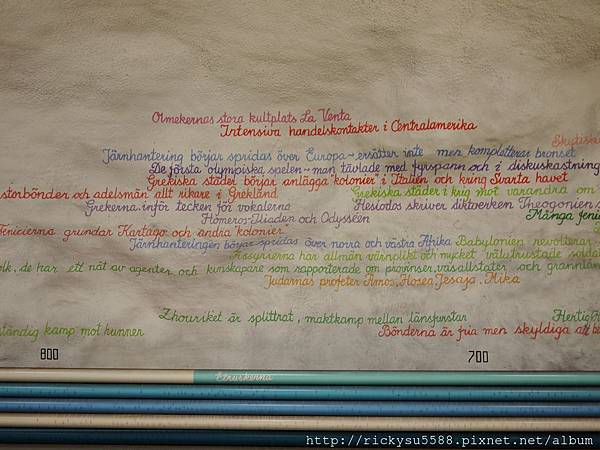 Olmekernas stora kultplats La Venta
Intensiva handelskontakter i Centralamerika
Skytiska
Järnhantering börjar spridas över Europa - ersätter inte men kompletterar bronset
De första "olympiska spelen" - man tävlade med fyrspann och i diskuskastning
Grekiska städer börjar anlägga "kolonier" i Italien och kring Svarta havet
storbönder och adelsmän" allt rikare i Grekland
Grekiska städer i krig mot varandra om
Grekerna inför tecken för vokalerna
Hesiodos skriver diktverken Theogonien
Homeros-Iliaden och Odysséen
Många feni
Fenicierna grundar Kartago och andra kolonier"
Järnhanteringen börjar spridas över norra och västra Afrika
Babylonien revolterar
Assyrierna har allmän värnplikt och mycket välutrustade soldat
olk, de har ett nät av agenter och kunskapare som rapporterade om provinser, vasallstater och grannlän
Judarnas profeter Amos, Hosea, Jesaja, Mika
Zhouriket är splittrat, maktkamp mellan länsfurstar
Hertig
ständig kamp mot hunner
Bönderna är fria men skyldiga att be
800
700
Etruskerna
http://rickysu5588.pixnet.net/album